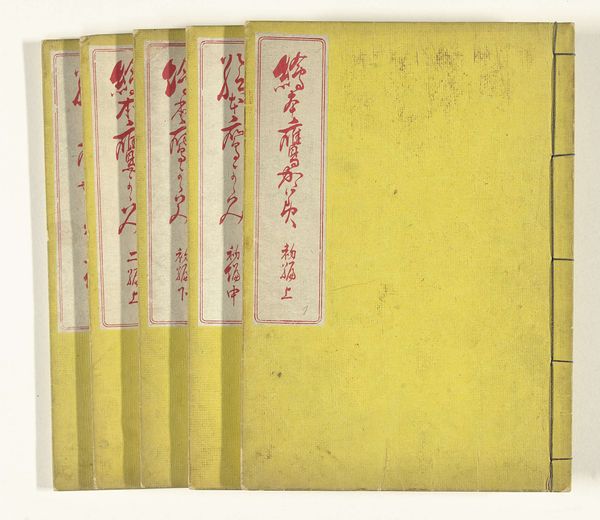 繪本鷹かゞみ 初編上
繪本鷹かゞみ 初編中
繪本鷹かゞみ 初編下
繪本鷹かゞみ 二編上